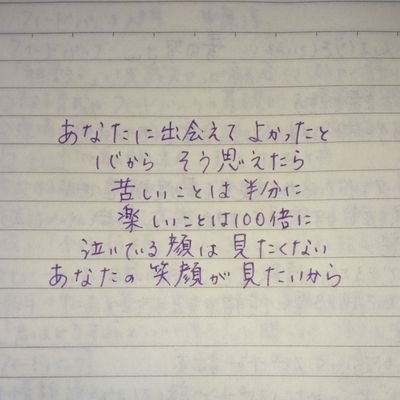 あなたに出会えてよかったと
心から そう思えたら
苦しいことは半分に
楽しいことは100倍に
泣いている顔は見たくない
あなたの笑顔が見たいから